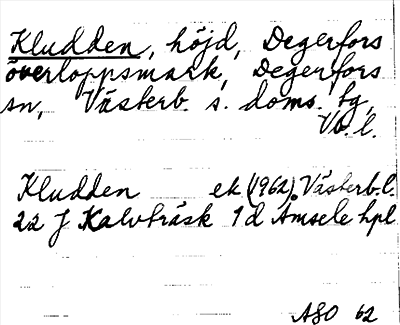 Kludden, höjd, Degerfors
överloppsmark, Degerfors
sn, Västerb. s. doms. tg,
Vb. l.
Kludden ek (1962). Västerb. l.
22 J Kalvträsk 1d Åmsele hpl
ASO 62